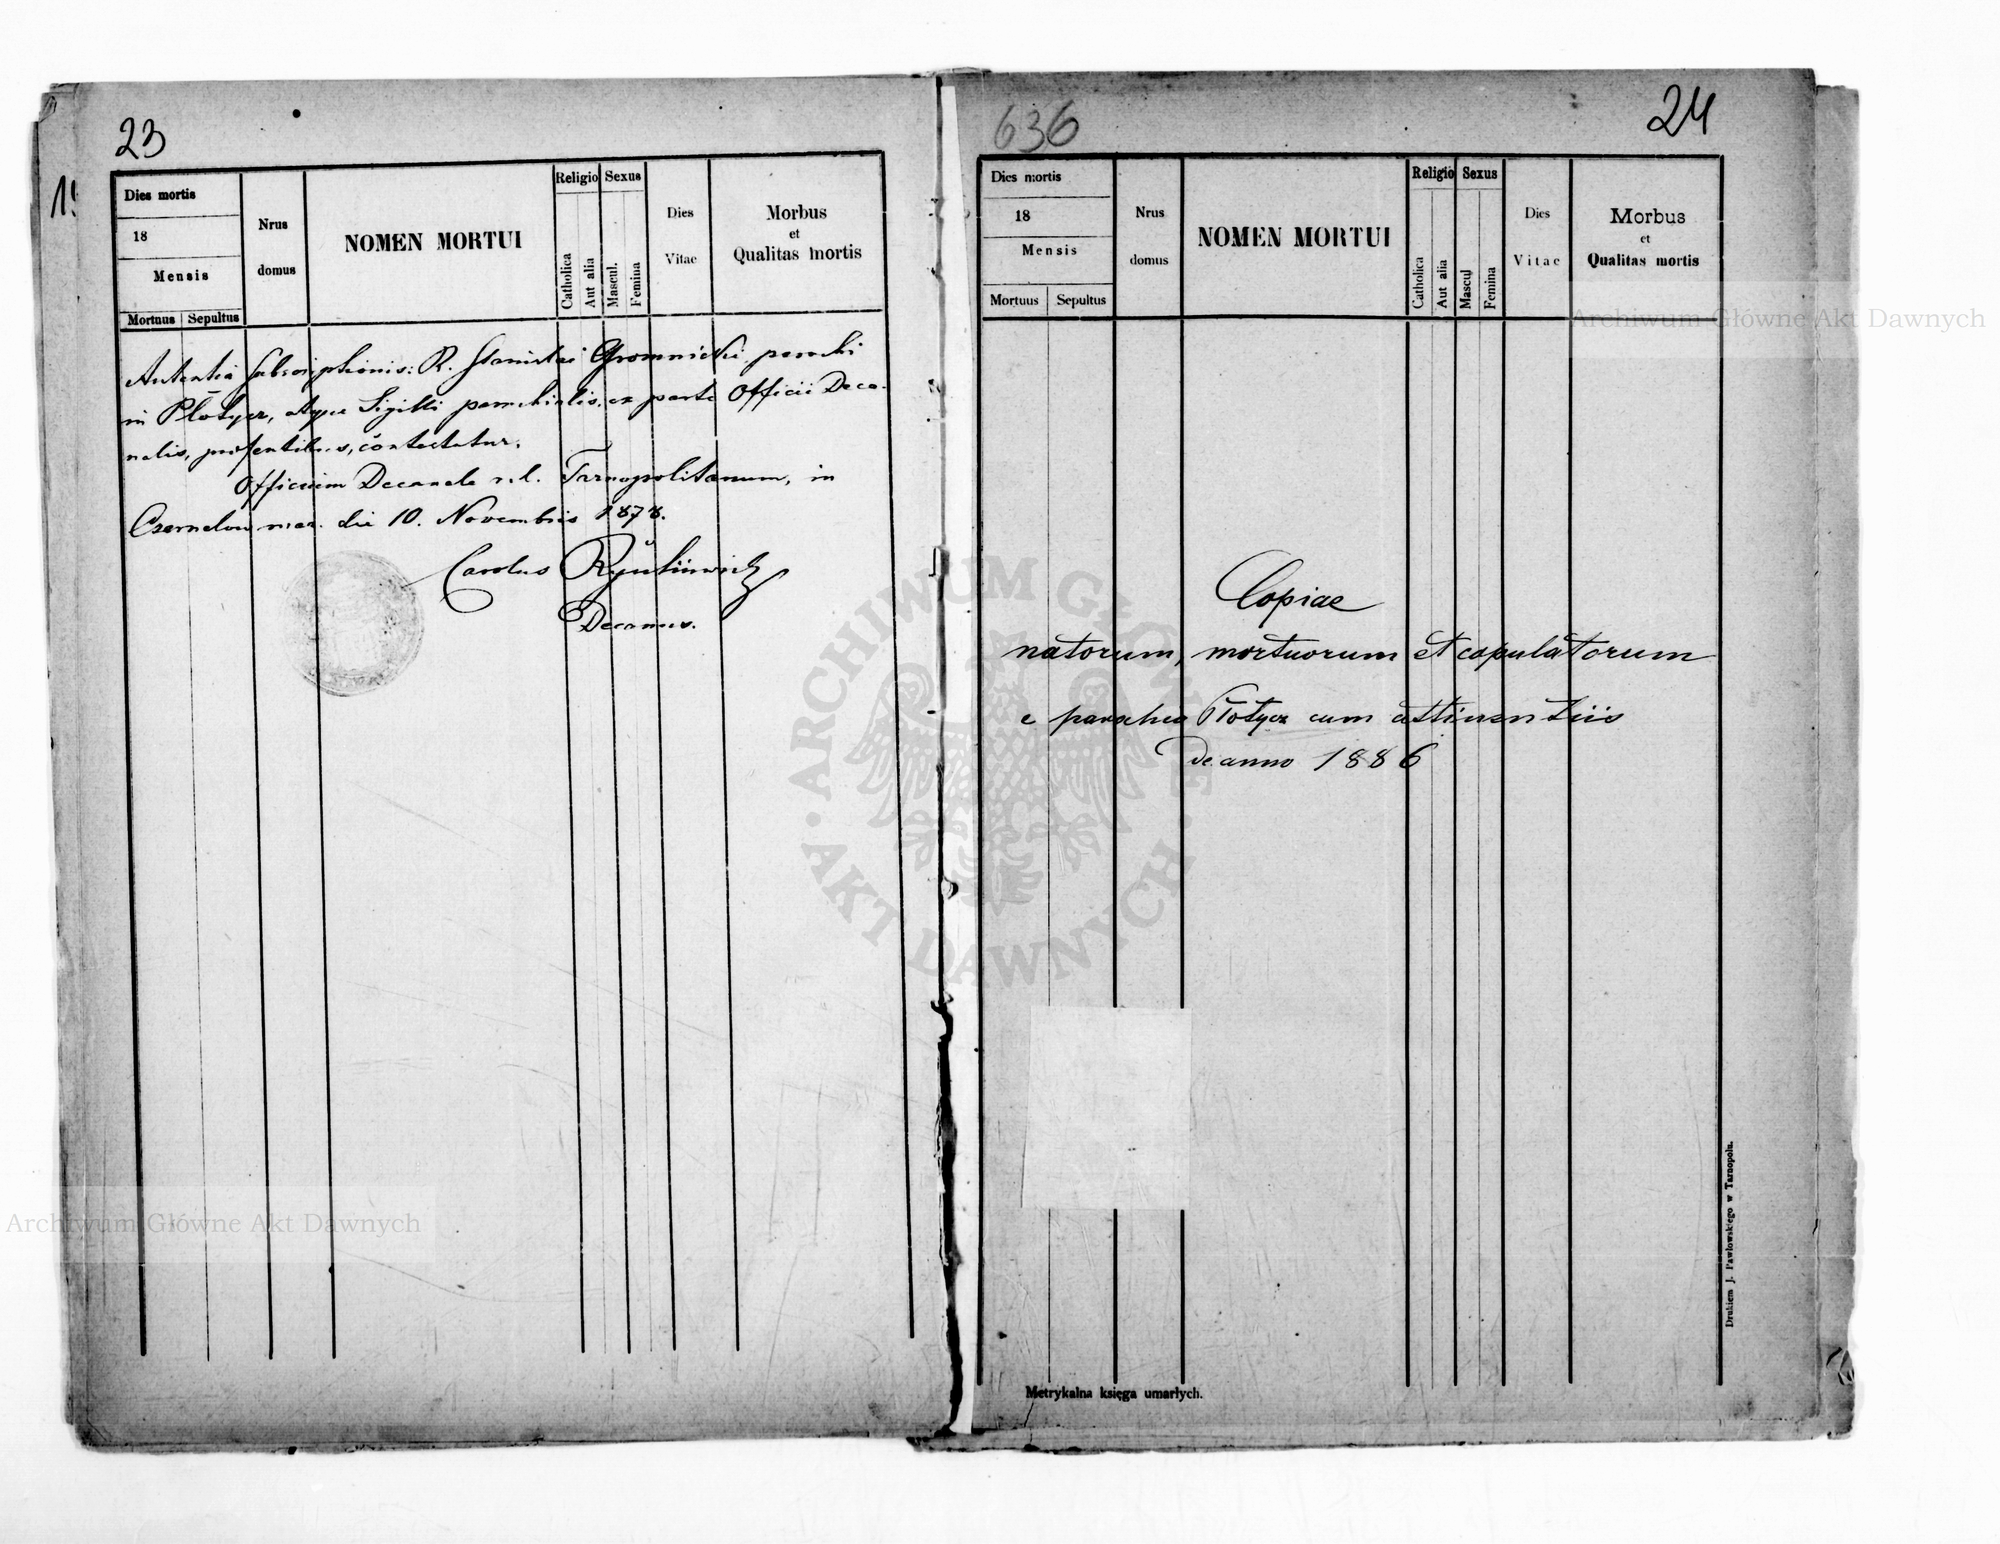 23
Dies mortis
18
Mensis
Mortuus Sepultus
Nrus
domus
NOMEN MORTUI
Religio
Catholica
Aut alia
Sexus
Mascul.
Femina
Dies
Vitae
Morbus
et
Qualitas mortis
Autentia subscriptionis: R. Stanislai Gromnicki parochi
in Płotycz, atque Sigilli parochialis, ex parte Officii Deca-
nalis, praesentibus, contestatur.
Officium Decanale r. l. Tarnopolitanum, in
Czernelow maz. die 10. Novembris 1878.
Carolus
Decanus.
636
24
Dies mortis
18
Mensis
Mortuus Sepultus
Nrus
domus
NOMEN MORTUI
Religio
Catholica
Aut alia
Sexus
Mascul
Femina
Dies
Vitae
Morbus
et
Qualitas mortis
Copiae
natorum, mortuorum et copulatorum
e parochia Płotycz cum attinentiis
de anno 1886
Metrykalna księga umarłych.
Drukiem J. Pawłowskiego w Tarnopolu.
Archiwum Główne Akt Dawnych
Archiwum Główne Akt Dawnych
ARCHIWUM GŁÓWNE
AKT DAWNYCH